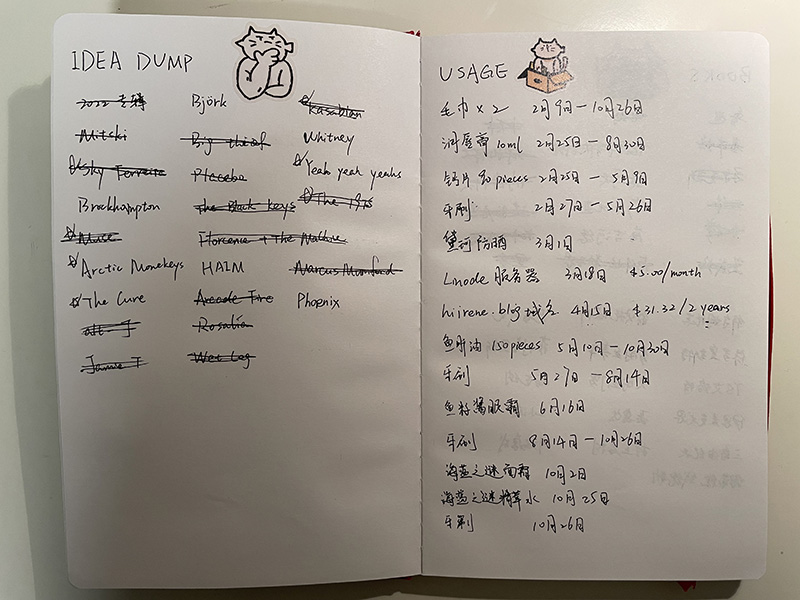 IDEA DUMP
2022 专辑
Mitski
Sky Ferreira
Brockhampton
Muse
Arctic Monekeys
The Cure
alt-J
Jamie T
Björk
Big thief
Placebo
The Black Keys
Florence + The Machine
HAIM
Arcade Fire
Rosalía
Wet Leg
Kasabian
Whitney
Yeah yeah yeahs
The 1975
Marcus Mumford
Phoenix
USAGE
毛巾 x 2 2月9日 — 10月26日
润唇膏 10ml 2月25日 — 8月30日
钙片 90 pieces 2月25日 — 5月9日
牙刷 2月27日 — 5月26日
黛珂防晒 3月1日
Linode 服务器 3月18日 $5.00/month
hiirene.blog 域名 4月15日 $31.32/2 years
鱼肝油 150 pieces 5月10日 — 10月30日
牙刷 5月27日 — 8月14日
鱼籽酱眼霜 6月16日
牙刷 8月14日 — 10月26日
海蓝之谜面霜 10月2日
海蓝之谜精萃水 10月25日
牙刷 10月26日